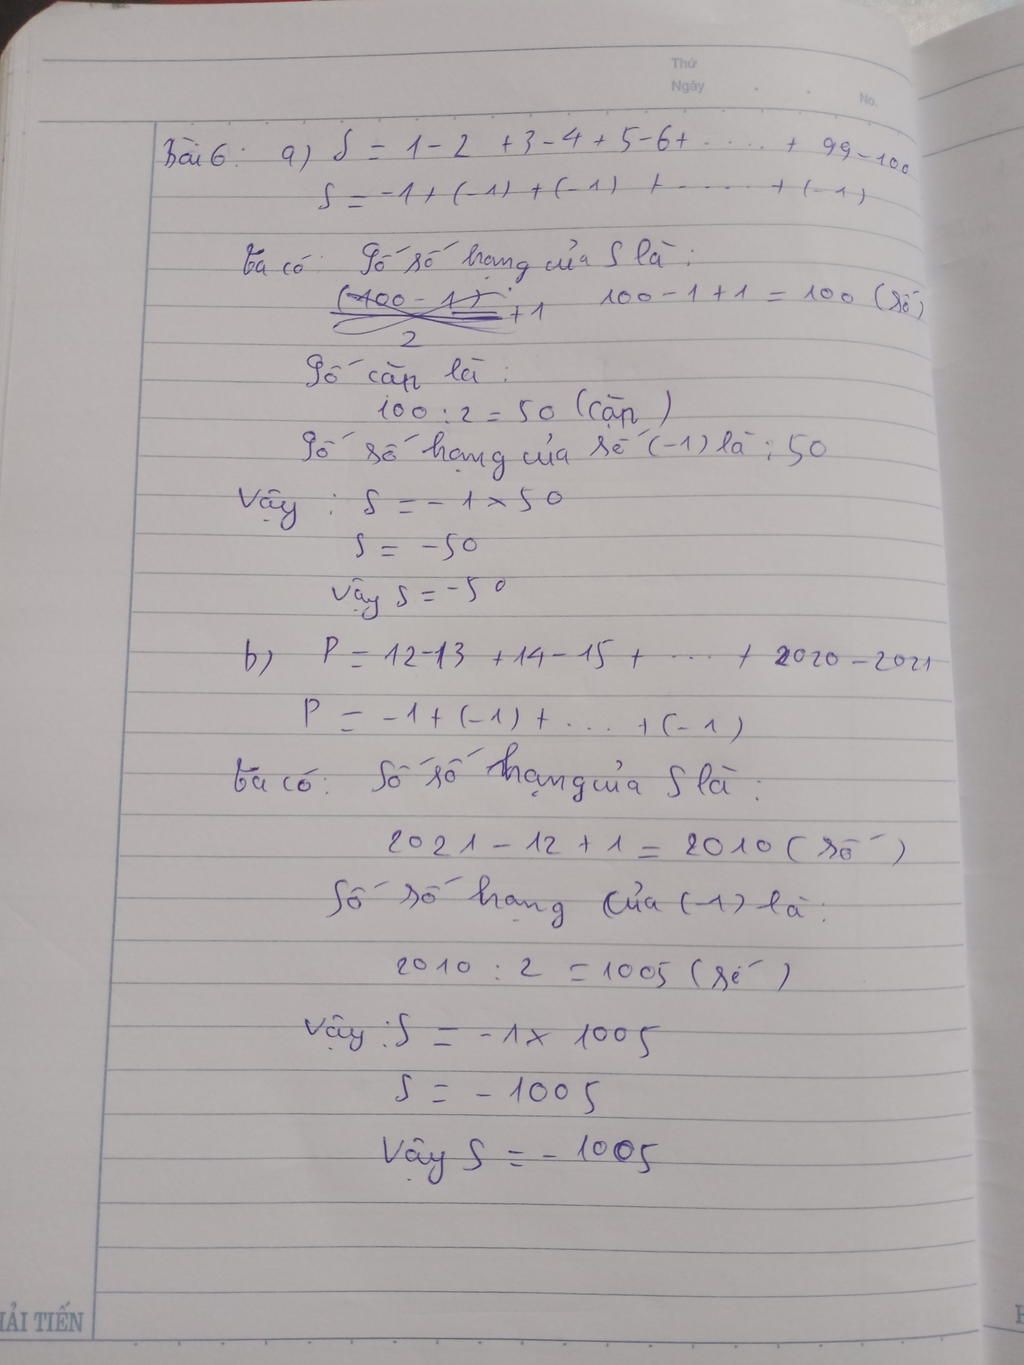 Thứ
Ngày
No.
Bài 6: a) S = 1-2 +3-4+5-6+.....+ 99-100
S = -1+(-1)+(-1) +......+(-1)
Ta có: Số số hạng của S là:
(100-1):2+1 100-1+1=100 (số)
Số cặp là:
100:2=50 (cặp)
Số số hạng của số (-1) là: 50
Vậy: S = -1×50
S = -50
Vậy S = -50
b) P = 12-13 +14-15 + ... + 2020-2021
P = -1+(-1)+....+(-1)
Ta có: Số số hạng của S là:
2021-12+1=2010 (số)
Số số hạng của (-1) là:
2010 : 2 = 1005 (số)
Vậy: S = -1× 1005
S = -1005
Vậy S = -1005
ẢI TIẾN